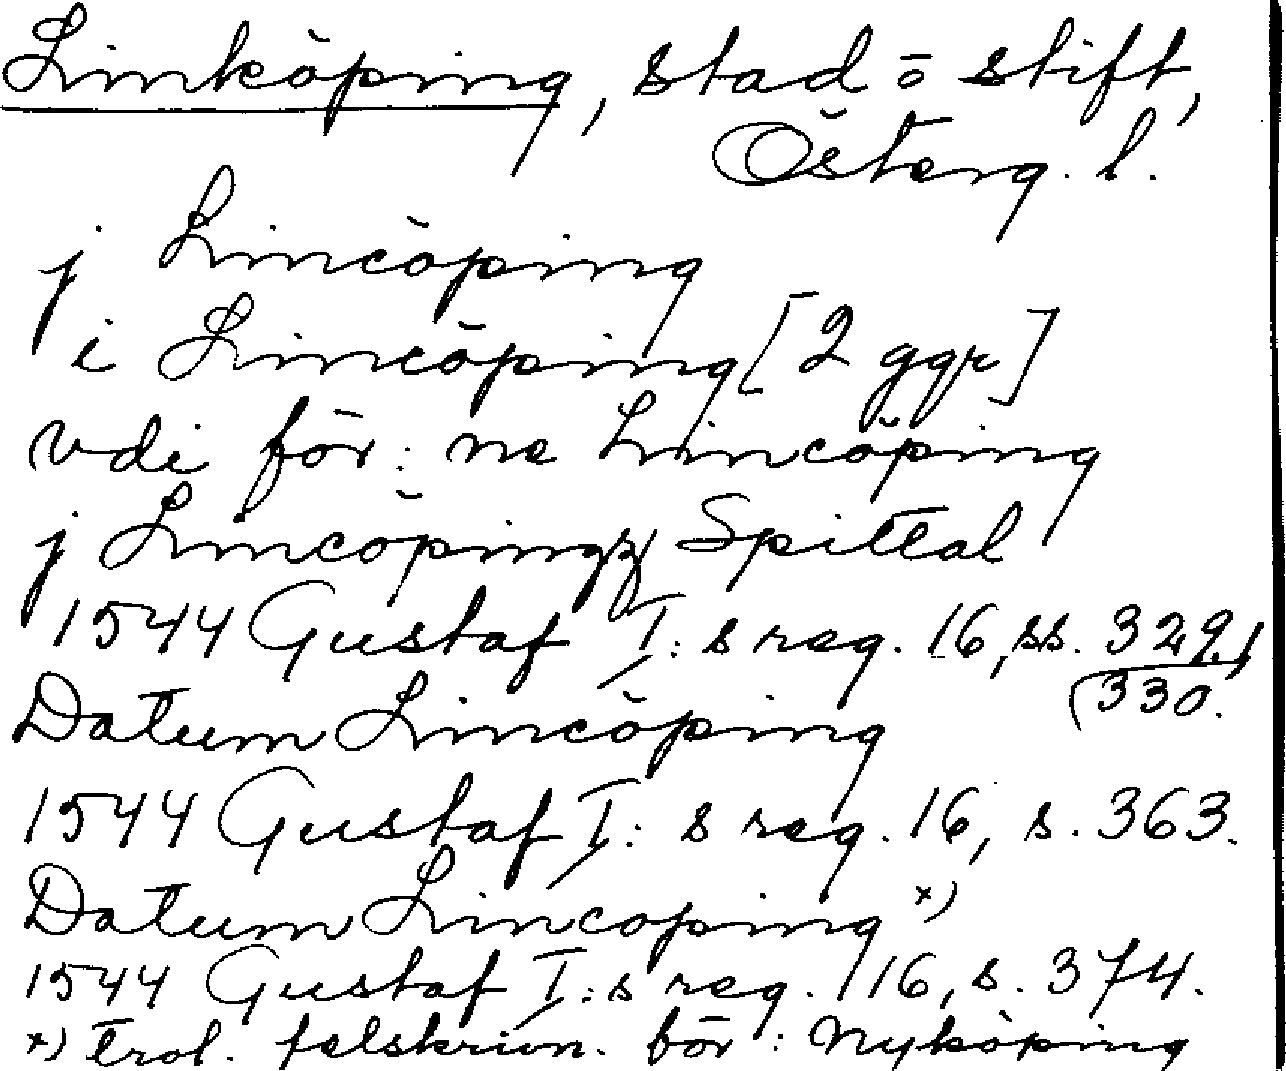 Linköping, stad o stift,
Österg. l.
j Lincöping
i Lincöping [2 ggr]
vdi för: ne Lincöping
j Lincöpingz Spittal
1544 Gustaf I: s reg. 16, ss. 329,
330.
Datum Lincöping
1544 Gustaf I: s reg. 16, s. 363.
Datum Lincoping x)
1544 Gustaf I: s reg. 16, s. 374.
x) trol. felskrivn. för: Nyköping